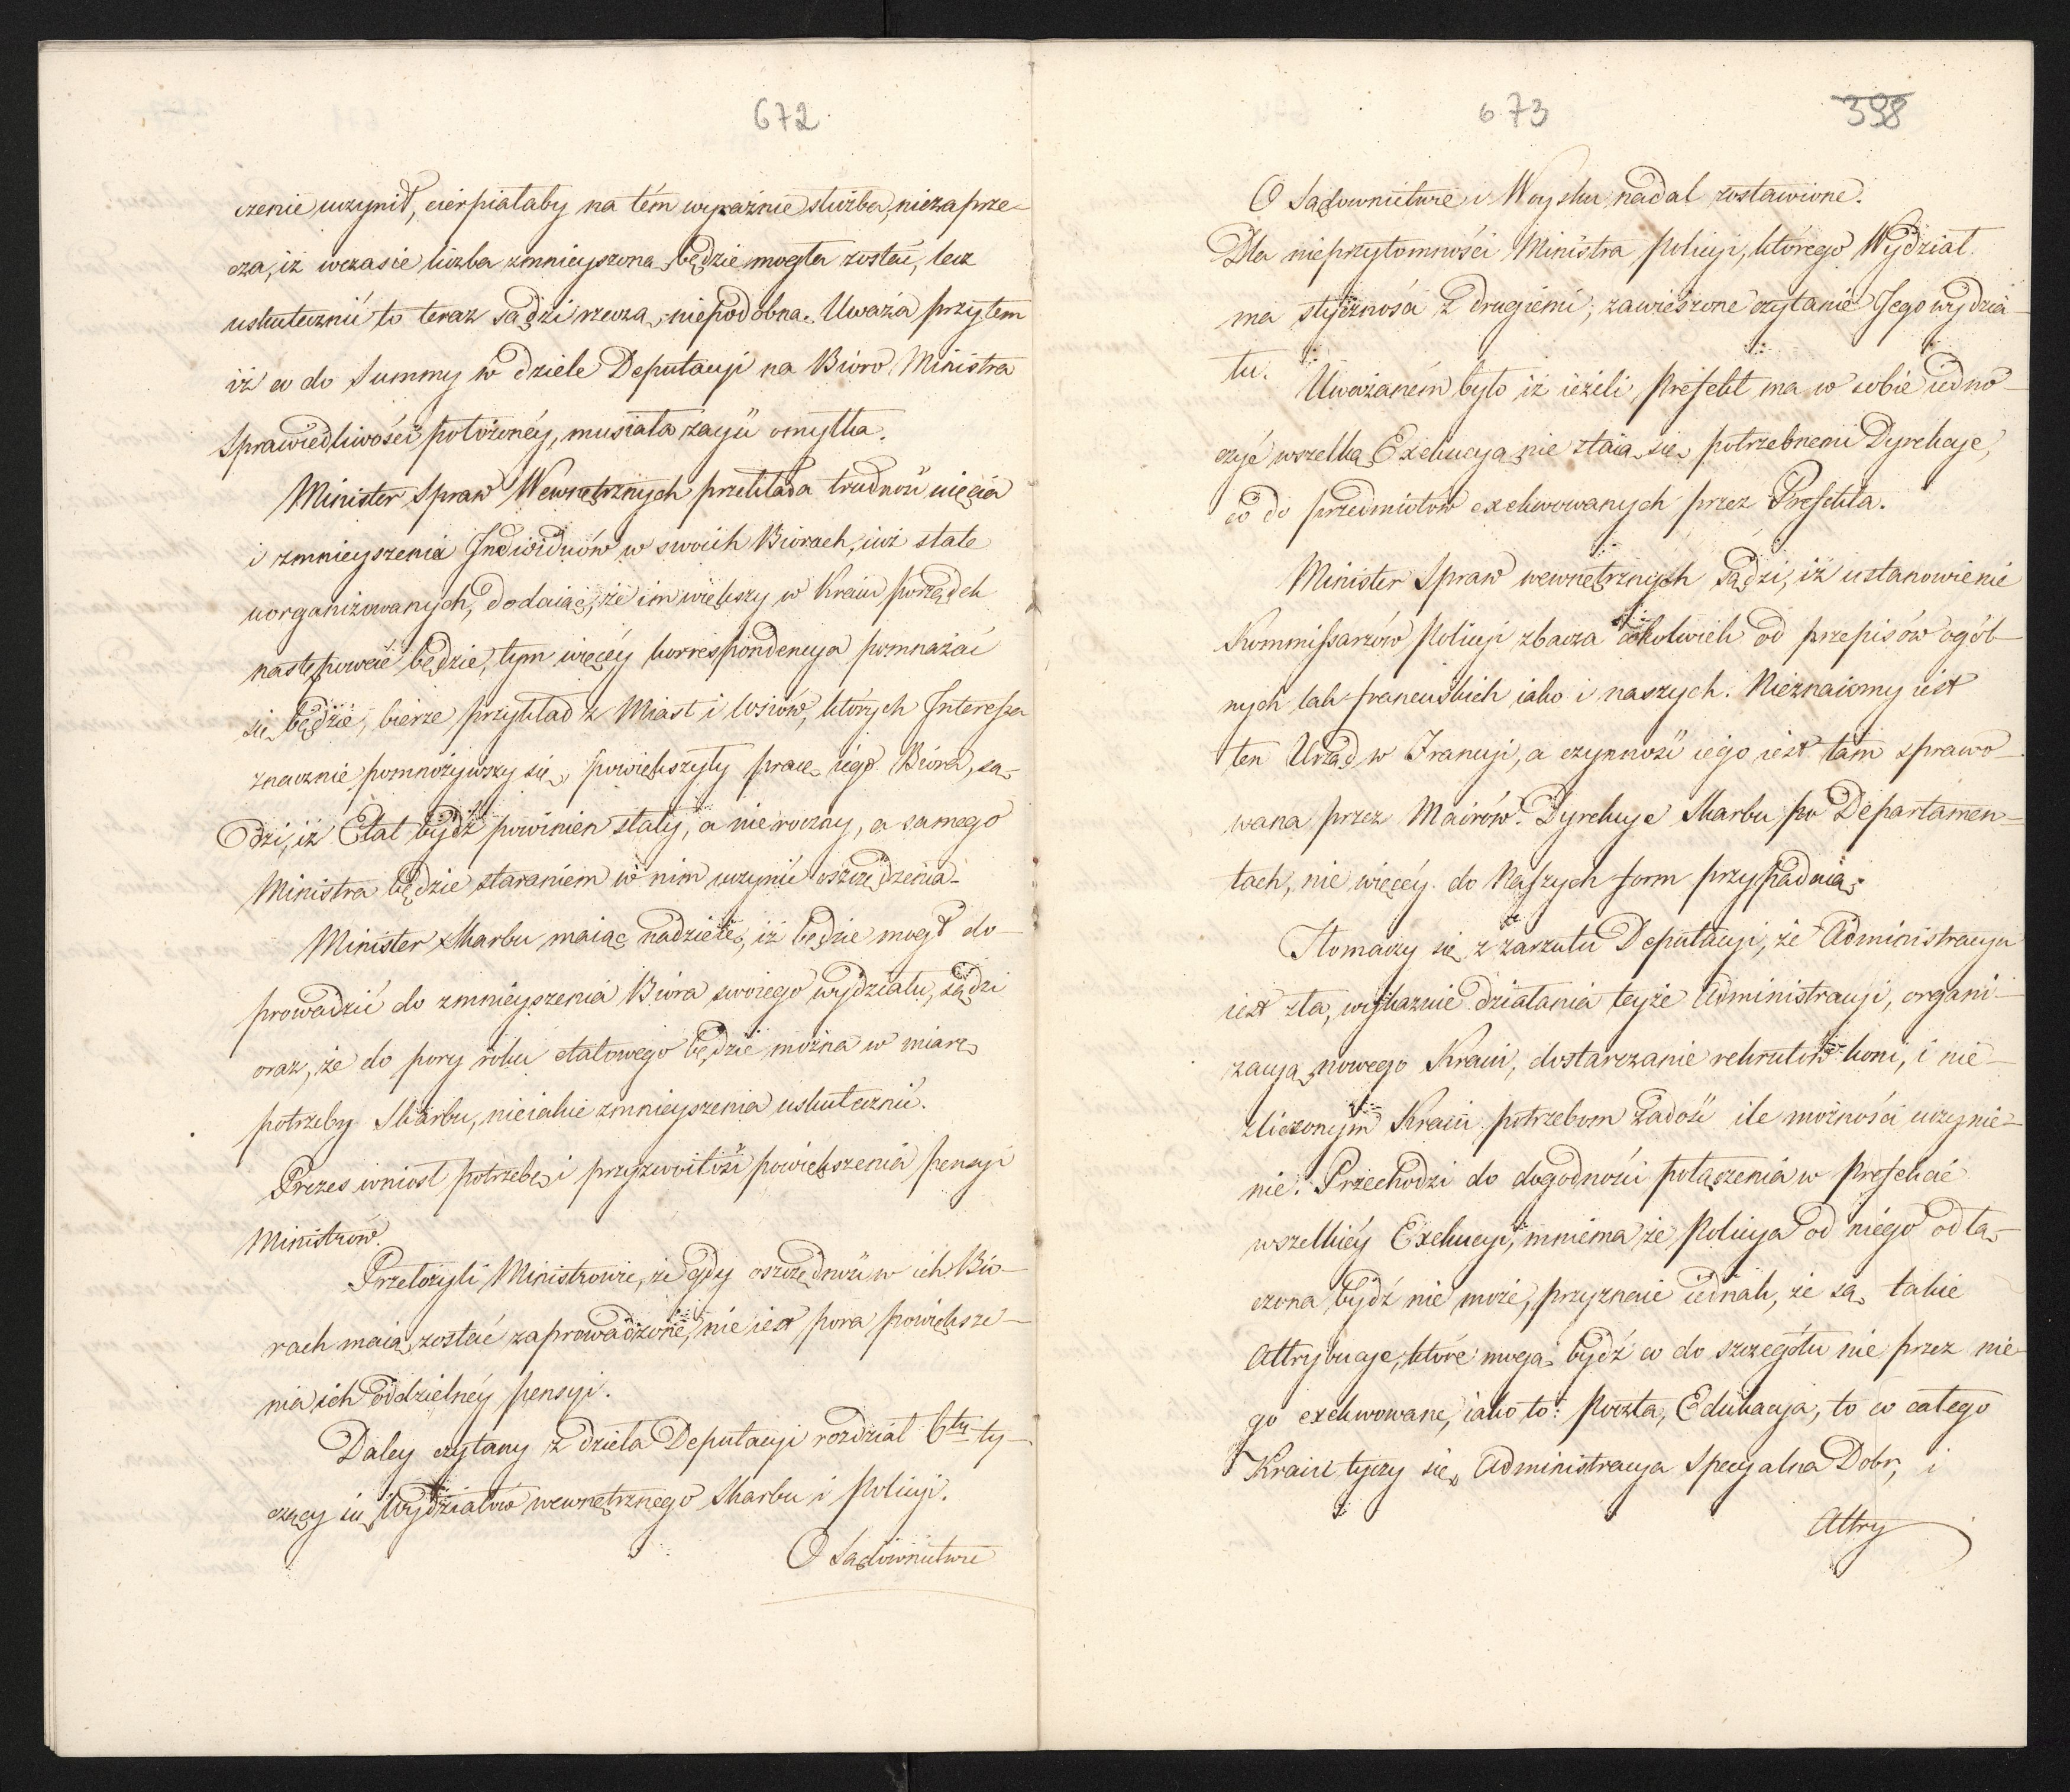 672.
czenie uczynił, cierpiałaby na tém wyraźnie służba, niezaprze-
cza, iż wczasie liczba zmnieyszona będzie mogła zostać, lecz
uskutecznić to teraz sądzi rzeczą niepodobną. Uważa przytem
iż co do Summy w dziele Deputacyi na Bióro Ministra
Sprawiedliwości położonéy, musiała zayść omyłka.
Minister Spraw Wewnętrznych przekłada trudność uięcia
i zmnieyszenia Indiwiduów w swoich Biórach, iuż stale
uorganizowanych, dodaiąc, że im większy w Kraiu porządek
następować będzie, tym więcéy korrespondencya pomnażać
się będzie, bierze przykład z Miast i Lasów, których Interessa
znacznie pomnożywszy się, powiększyły pracę iego Bióra, są-
dzi, iż Etat bydź powinien stały, a nie roczny, a samego
Ministra będzie staraniem w nim uczynić oszczędzenia.
Minister Skarbu maiąc nadzieię, iż będzie mógł do-
prowadzić do zmnieyszenia Bióra swoiego wydziału, sądzi
oraz, że do pory roku etatowego będzie można w miarę
potrzeby Skarbu, nieiakie zmnieyszenia uskutecznić.
Prezes wniosł potrzebę i przyzwoitość powiększenia pensyi
Ministrów.
Przełożyli Ministrowie, że gdy oszczędność w ich Bió-
rach maią zostać zaprowadzone, nie iest pora powiększe-
nia ich oddzielnéy pensyi.
Daley czytany z dzieła Deputacyi rozdział 6ty ty-
czący się Wydziałów wewnętrznego Skarbu i Policyi.
O Sądownictwie
673
398
O Sądownictwie i Woysku nadal zostawione.
Dla nieprzytomności Ministra Policyi, którego Wydział
ma styczność z drugiemi, zawieszone czytanie Jego wydzia-
łu.
Uważaném było iż ieżeli Prefekt ma w sobie iedno-
czyć wszelką Exekucyą, nie staią się potrzebnemi Dyrekcye,
co do przedmiotów exekwowanych przez Prefekta.
Minister Spraw wewnętrznych sądzi, iż ustanowienie
Kommissarzów Policyi zbacza cokolwiek od przepisów ogól-
nych tak francuskich iako i naszych. Nieznaiomy iest
ten Urząd w Francyi, a czynność iego iest tam sprawo-
wana przez Mairów. Dyrekcye Skarbu po Departamen-
tach, nie więcéy do Naszych form przypadaią.
Tłomaczy się z zarzutu Deputacyi, że Administracya
iest zła, wskazuie działania teyże Administracyi, organi-
zacyą nowego Kraiu, dostarczanie rekrutów koni, i nie-
zliczonym Kraiu potrzebom zadość ile możności uczynie-
nie. Przechodzi do dogodności połączenia w Prefekcie
wszelkiéy Exekucyi, mniema że Policya od niego odłą-
czona bydź nie może, przyznaie iednak, że są takie
Attrybucye, które mogą bydź co do szczegółu nie przez nie-
go exekwowane, iako to: Poczta, Edukacya, to co całego
Kraiu tyczy się, Administracya Specyalna Dobr, i
Attry